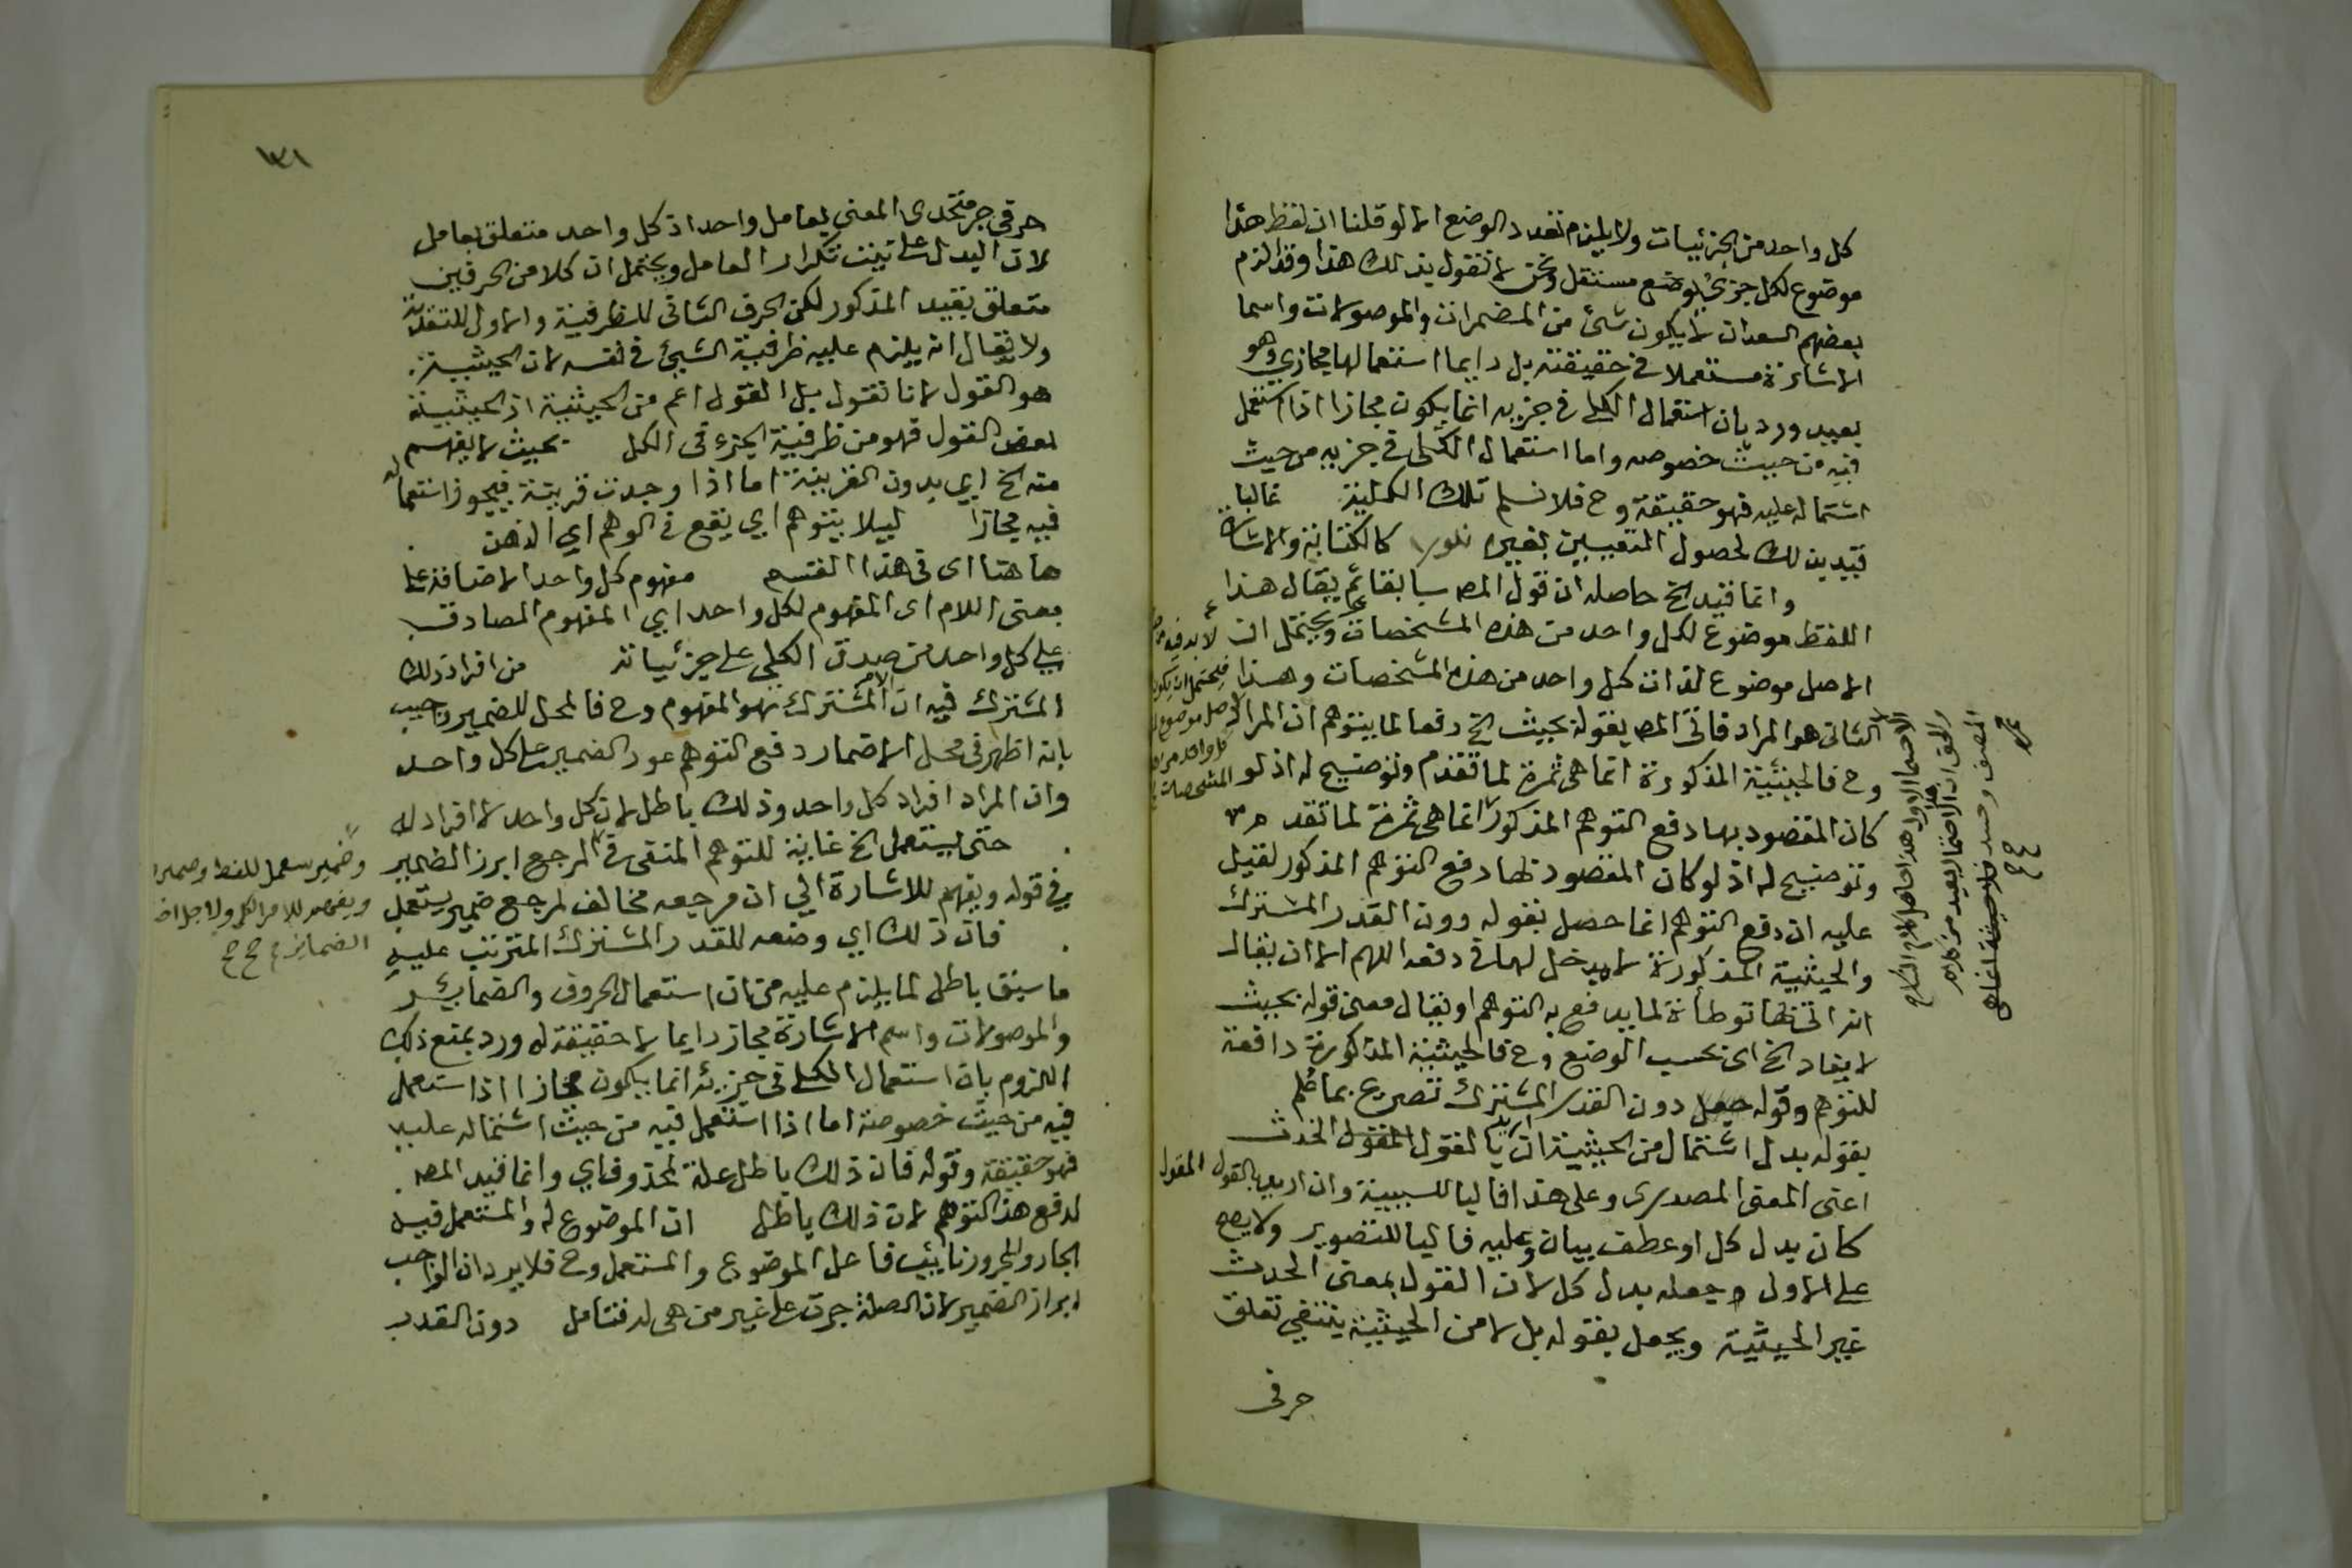 كل واحد من الجزئيات ولا يلزم تعدد الوضع الا لو قلنا ان لفظ هذا
موضوع لكل جزئي بوضع مستقل ونحن لا نقول بذلك هذا وقد الزم
بعضهم السعد ان لا يكون شئ من المضمرات والموصولات واسما
الاشارة مستعملا في حقيقته بل دايما استعمالها مجازي وهو
بعيد ورد بان استعمال الكلي في جزيه انما يكون مجازا اذا استعمل
فيه من حيث خصوصه واما استعمال الكلي في جزيه من حيث
اشتماله عليه فهو حقيقة وح فلا نسلم تلك الكلية غالبا
قيد بذلك لحصول التعيين بغيره كالكتابة والاشارة
وانما قيد الخ حاصله ان قول المص سابقا ثم يقال هذا
اللفظ موضوع لكل واحد من هذه المشخصات ويحتمل ان
الاصل موضوع لذات كل واحد من هذه المشخصات وهذا
الثاني هو المراد فاتى المص بقوله بحيث الخ دفعا لما يتوهم ان المراد
وح فالحيثية المذكورة انما هي ثمرة لما تقدم وتوضيح له اذ لو
كان المقصود بها دفع التوهم المذكور انما هي ثمرة لما تقدم
وتوضيح له اذ لو كان المقصود بها دفع التوهم المذكور لقيل
عليه ان دفع التوهم انما حصل بقوله دون القدر المشترك
والحيثية المذكورة لا يدخل لها في دفعه اللهم الا ان يقال
انه اتى بها توطأة لما يدفع به التوهم او يقال معنى قوله بحيث
لا يفاد الخ اي بحسب الوضع وح فالحيثية المذكورة دافعة
للتوهم وقوله دون القدر المشترك تصريح بما علم
بقوله بدل اشتمال من الحيثية ان اريد بالقول الحدث
اعنى المعنى المصدري وعلى هذا فالبا للسببية وان اريد بالقول المقول
كان بدل كل او عطف بيان وعليه فالبا للتصوير ولا يصح
على الاول جعله بدل كل لان القول بمعنى الحدث
غير الحيثية ويجعل بقوله بدلا من الحيثية ينتفي تعلق
حرفي
لا بد فيه من
فيحتمل ان يكون
الاصل موضوع
كل واحد من هذه
المشخصات
الاحتمال الاول هذا حاصل كلام الشارح
والحق ان هذا الاحتمال بعيد من كلام
المصنف وحينئذ فلا حيثية انما هي
١٣١
حرفي جر متحدي المعنى بعامل واحد اذ كل واحد متعلق بعامل
لان البدل على نيت تكرار العامل ويحتمل ان كلا من الحرفين
متعلق بقيد المذكور لكن الحرف الثاني للظرفية والاول للتعدية
ولا يقال انه يلزم عليه ظرفية الشئ في نفسه لان الحيثية
هو القول لانا نقول بل القول اعم من الحيثية اذ الحيثية
بعض القول فهو من ظرفية الجزء في الكل بحيث لا يفهم
منه الخ اي بدون القرينة اما اذا وجدت قرينة فيجوز استعماله
فيه مجازا ليلا يتوهم اي يقع في الوهم اي الذهن
هاهنا اى في هذا القسم مفهوم كل واحد الاضافة على
بمعنى اللام اى المفهوم لكل واحد اي المفهوم الصادق
على كل واحد من صدق الكلي على جزئياته من افراد ذلك
المشترك فيه ان الامر المشترك هو المفهوم وح فالمحل للضمير واجيب
بانه اظهر في محل الاضمار دفع التوهم عود الضمير على كل واحد
وان المراد افراد كل واحد وذلك باطل لان كل واحد لا افراد له
حتى يستعمل الخ غاية للتوهم المنفى في المرجع ابرز الضمير
في قوله ويفهم للاشارة الي ان مرجعه مخالف لمرجع ضمير يستعمل
فان ذلك اي وضعه للقدر المشترك المترتب عليه
ما سبق باطل لما يلزم عليه من ان استعمال الحروف والضماير
والموصولات واسم الاشارة مجاز دايما لا حقيقة له ورد بمنع ذلك
اللزوم بان استعمال الكلي في جزيه انما يكون مجازا اذا استعمل
فيه من حيث خصوصه اما اذا استعمل فيه من حيث اشتماله عليه
فهو حقيقة وقوله فان ذلك باطل علة لمحذوف اي وانما قيد المص
لدفع هذا التوهم لان ذلك باطل ان الموضوع له والمستعمل فيه
الجار والمجرور نايب فاعل الموضوع والمستعمل وح فلا يرد ان الواجب
ابراز الضمير لان الصلة جرت على غير من هي له فتامل دون القدر
وضمير يستعمل للفظ وضمير
ويفهم للامر الكلي ولاجل
الضماير